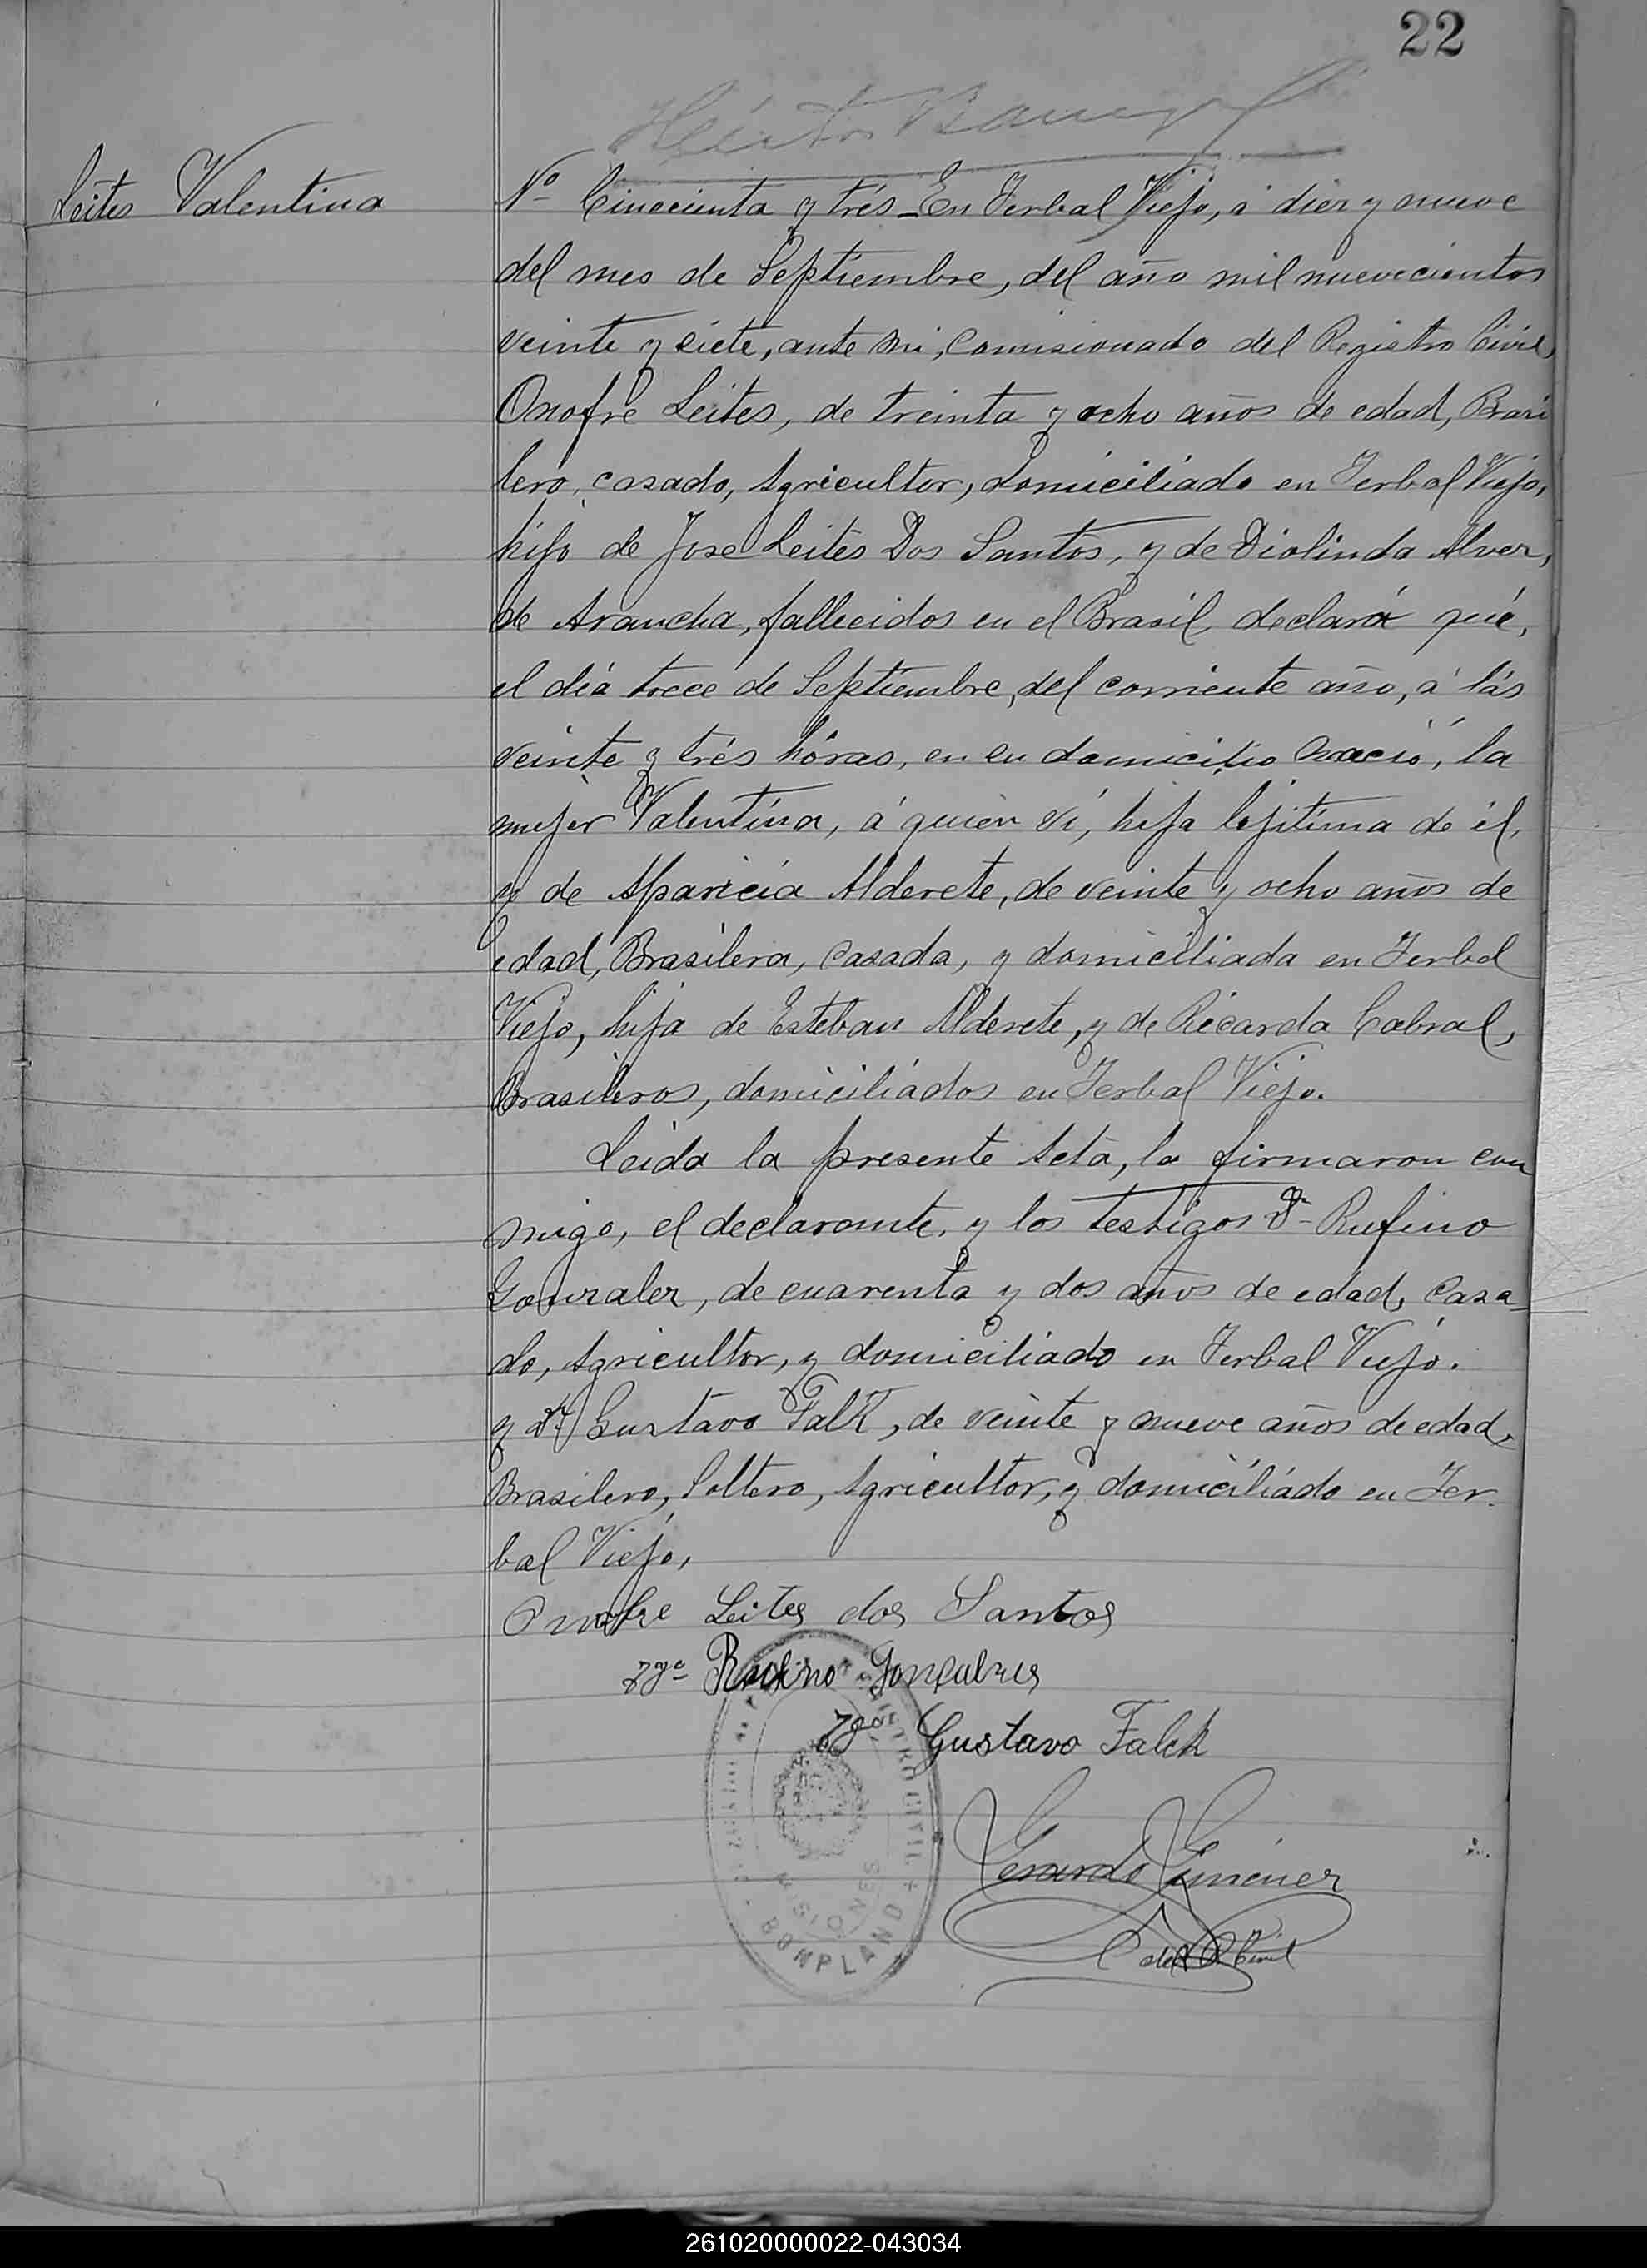 22
Leites Valentina
Nº Cincuenta y trés - En Yerbal Viejo, á diez y nueve
del mes de Septiembre, del año mil nuevecientos
veinte y siete, ante mi, Comisionado del Registro Civil,
Onofre Leites, de treinta y ocho años de edad, Brasi
lero, casado, Agricultor, domiciliado en Yerbal Viejo,
hijo de Jose Leites Dos Santos, y de Diolinda Alvez,
de Arancha, fallecidos en el Brasil, declará qué,
el día trece de Septiembre, del corriente año, á lás
veinte y trés hóras, en su domicilio nació, la
mujer Valentina, á quien ví, hija lejitima de él,
y de Aparicia Alderete, de veinte y ocho años de
edad, Brasilera, casada, y domiciliada en Yerbal
Viejo, hija de Esteban Alderete, y de Ricarda Cabral,
Brasileros, domiciliados en Yerbal Viejo.
Leida la presente Acta, la firmaron con
migo, el declarante, y los testigos Dn Rufino
Gonzalez, de cuarenta y dos años de edad, Casa-
do, Agricultor, y domiciliado en Yerbal Viejo.
y Dn Gustavo Falk, de veinte y nueve años de edad,
Brasilero, Soltero, Agricultor, y domiciliado en Yer-
bal Viejo,
Onofre Leites dos Santos
Tgo Rufino Gonçalves
Tgo Gustavo Falck
REGISTRO CIVIL
MISIONES
BOMPLAND
Gerardo Gimenez
del R. Civil
261020000022-043034